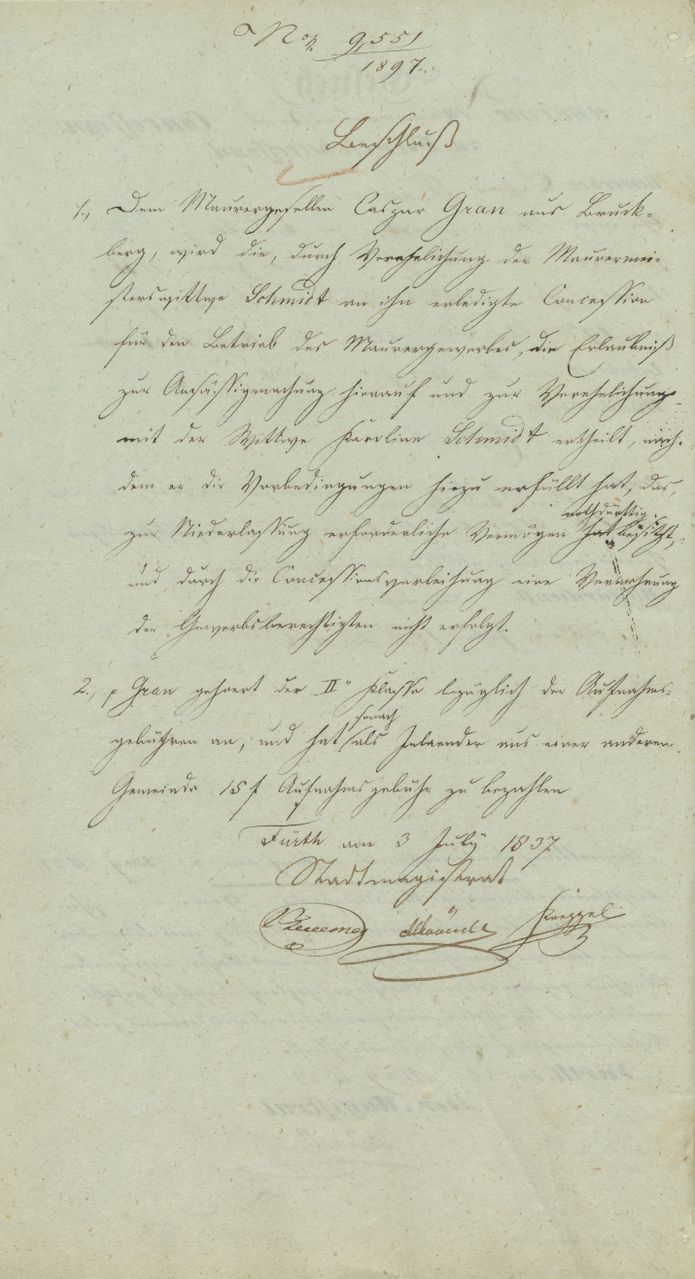 9,551
1897.
Beschluß
1., Dem Maurergesellen Caspar Gran aus Bruck-
berg, wird die, durch Verehelichung der Maurermei-
sterswittwe Schmidt an ihn erledigte Concession
für den Betrieb des Maurergewerbes, die Erlaubniß
zur Ansässigmachung hierauf und zur Verehelichung
mit der Wittwe Karoline Schmidt ertheilt, nach-
dem er die Vorbedingungen hiezu erfüllt hat, das,
nothdürftig
zur Niederlassung erforderliche Vermögen hat besitzt,
und durch die Concessionsverleihung eine Vermehrung
der Gewerbsberechtigten nicht erfolgt.
2., p Gran gehoert der II Klasse bezüglich der Aufnahms-
sonach
gebühren an, und hat als Inlaender aus einer anderen
Gemeinde 15 f Aufnahmsgebühr zu bezahlen
Fürth am 3 July 1837
Stadtmagistrat
Koeppel